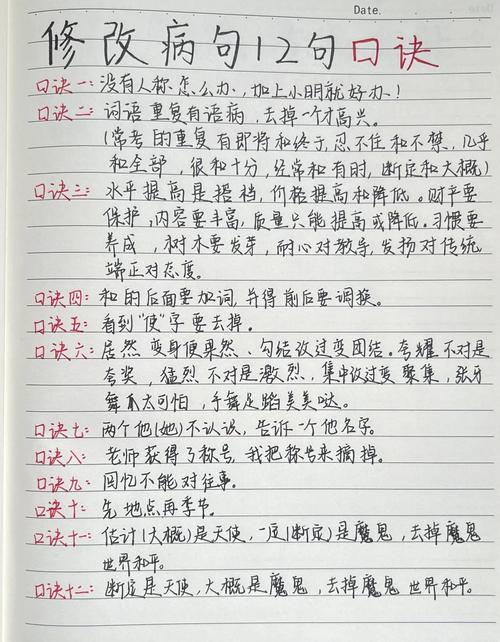 Date.
修改病句12句口诀
口诀一:没有人称怎么办,加上小明就好办!
口诀二:词语重复有语病,去掉一个才高兴。
(常考的重复有即将和终于,忍不住和不禁,几乎
和全部,很和十分,经常和有时,断定和大概)
口诀三:水平提高是搭档,价格提高和降低。财产要
保护,内容要丰富,质量只能提高或降低。习惯要
养成,树木要发芽,耐心对教导,发扬对传统,
端正对态度。
口诀四:和的后面要加词,并得前后要调换。
口诀五:看到"使"字要去掉。
口诀六:居然变身便果然、勾结议过变团结。夸耀不对是
夸奖,猛烈不对是激烈,集中议过变聚集,张牙
舞爪太可怕,手舞足蹈美美哒。
口诀七:两个他(她)不认识,告诉一个他名字。
口诀八:老师获得了称号,我把称号来摘掉。
口诀九:回忆不能对往事。
口诀十:先地点再季节。
口诀十一:估计(大概)是天使,一定(断定)是魔鬼,去掉魔鬼
世界和平。
口诀十二:断定是天使,大概是魔鬼,去掉魔鬼世界和平。